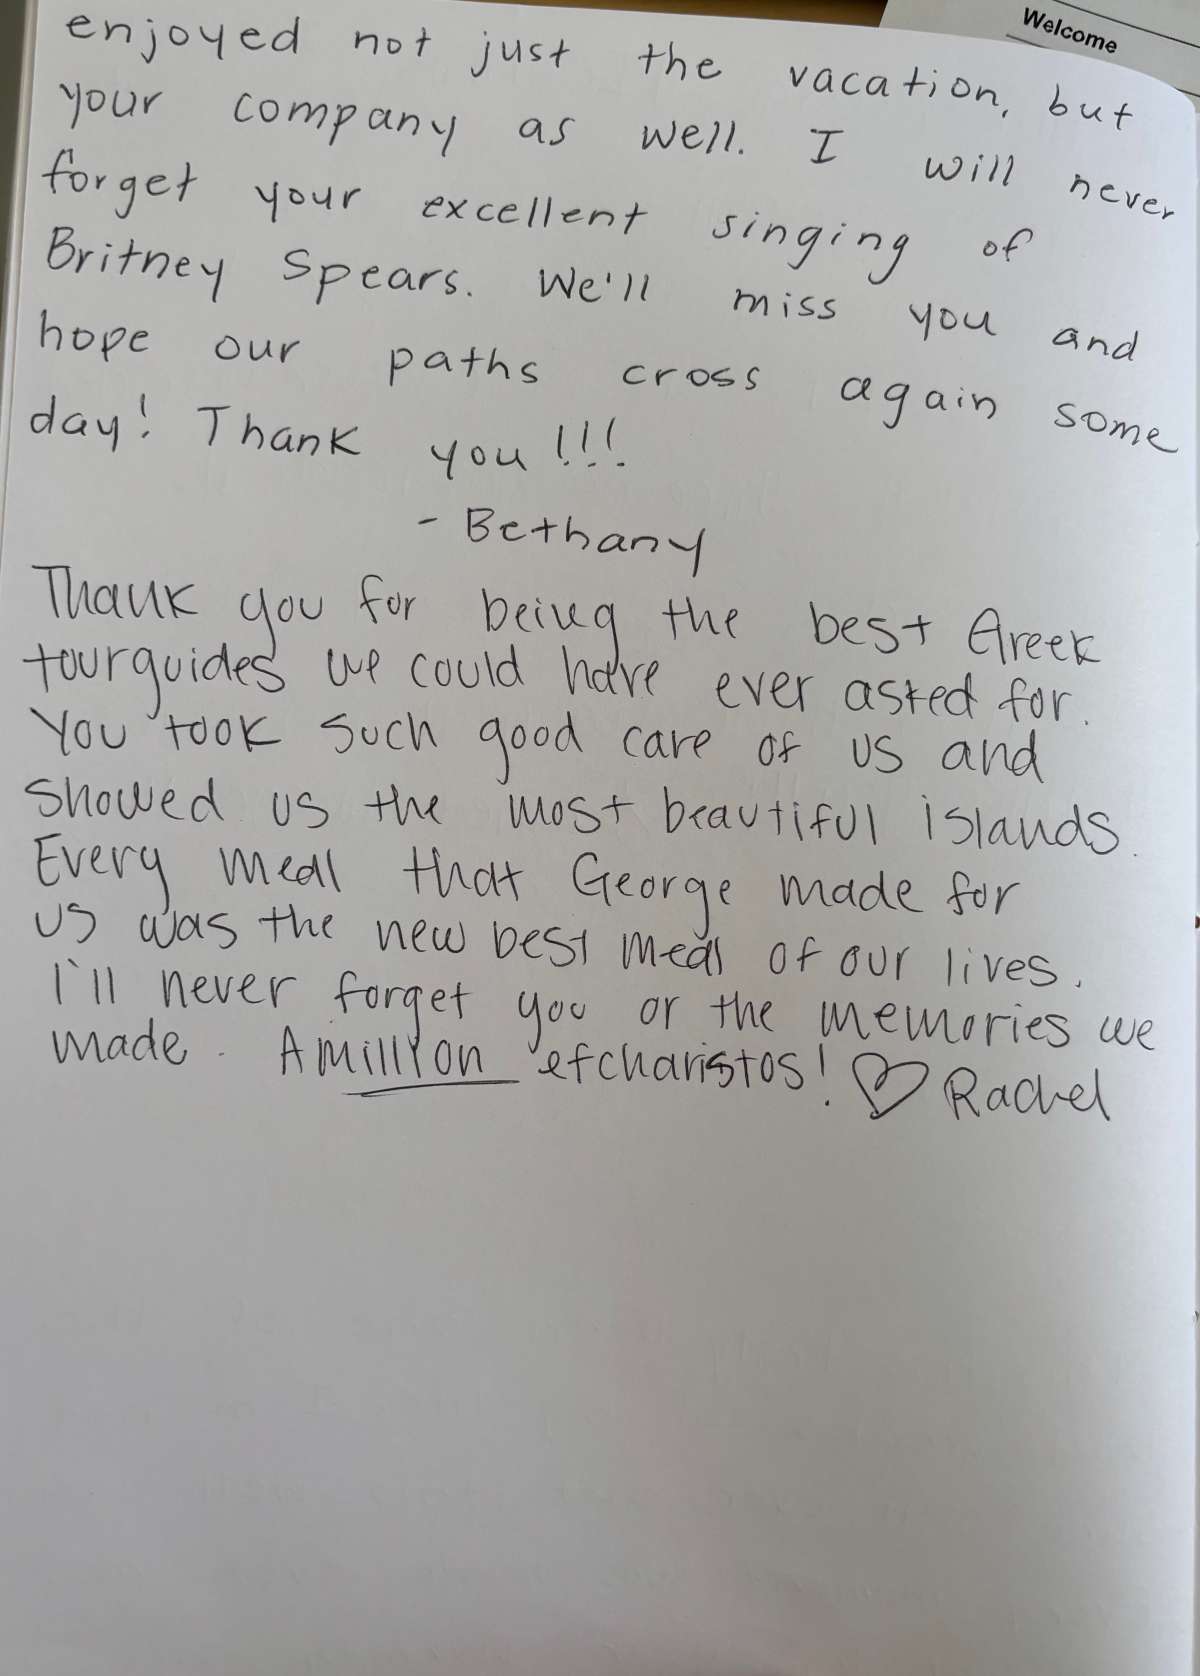 Welcome
enjoyed not just the vacation, but
your company as well. I will never
forget your excellent singing of
Britney Spears. We'll miss you and
hope our paths cross again some
day! Thank you!!!
- Bethany
Thank you for being the best Greek
tourguides we could have ever asked for.
You took such good care of us and
showed us the most beautiful islands.
Every meal that George made for
us was the new best meal of our lives.
I'll never forget you or the memories we
made. A million efcharistos! ♡ Rachel